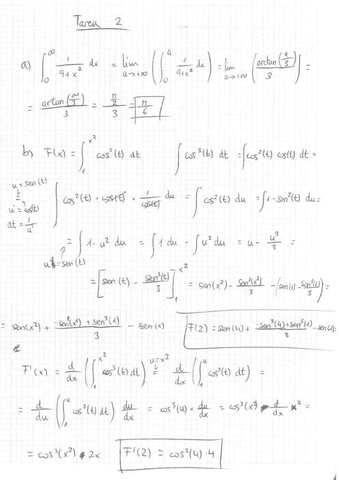 Tarea 2
a) ∫₀^∞ 1/(9+x²) dx = lim_{a→+∞} (∫₀^a 1/(9+x²) dx) = lim_{a→+∞} (arctan(a/3)/3) =
= arctan(∞/3)/3 = (π/2)/3 = π/6
b) F(x) = ∫₁^{x²} cos³(t) dt ∫ cos³(t) dt = ∫ cos²(t) cos(t) dt =
u = sen(t)
u' = cos(t)
dt = 1/u'
∫ cos²(t) · cos(t) × 1/cos(t) du = ∫ cos²(t) du = ∫ 1-sen²(t) du =
= ∫ 1-u² du = ∫ 1 du - ∫ u² du = u - u³/3 =
u = sen(t)
= [sen(t) - sen³(t)/3]₁^{x²} = sen(x²) - sen³(x²)/3 - (sen(1) - sen³(1)/3) =
= sen(x²) + (-sen³(x²) + sen³(1))/3 - sen(1) F(2) = sen(4) + (-sen³(4) + sen³(1))/3 - sen(1)
F'(x) = d/dx (∫₁^{x²} cos³(t) dt) u=x² = d/dx (∫₁^u cos³(t) dt) =
= d/du (∫₁^u cos³(t) dt) du/dx = cos³(u) × du/dx = cos³(x²) · d/dx x² =
= cos³(x²) · 2x F'(2) = cos³(4) · 4